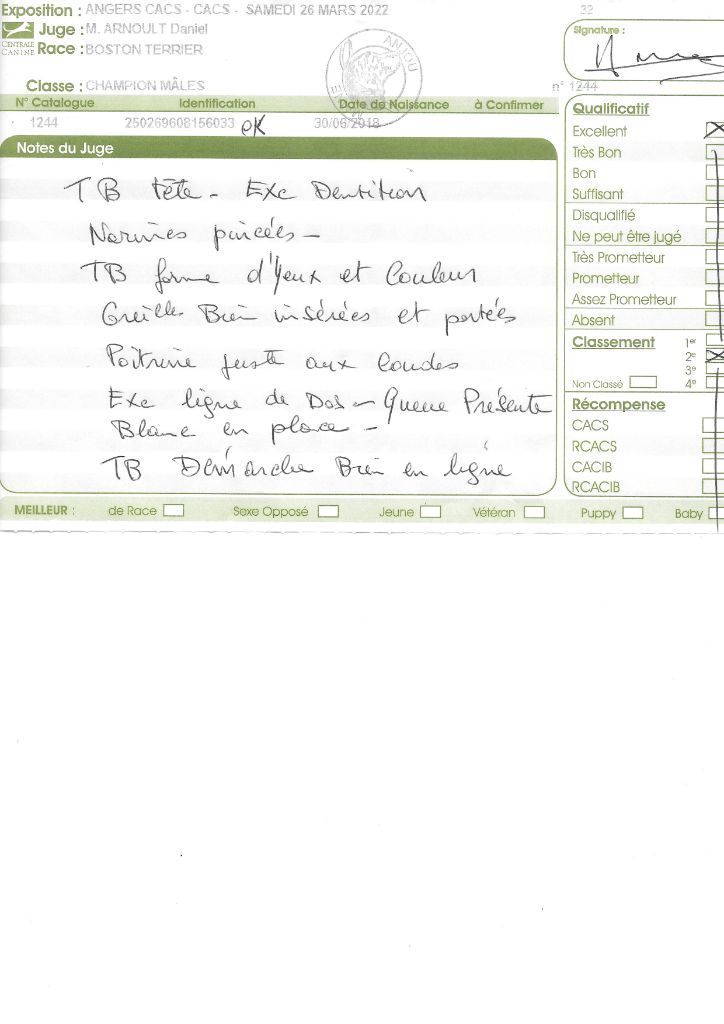 Exposition : ANGERS CACS - CACS - SAMEDI 26 MARS 2022 32
CENTRALE CANINE
Juge : M. ARNOULT Daniel
Race : BOSTON TERRIER
Signature :
ANJOU
Classe : CHAMPION MÂLES n° 1244
N° Catalogue Identification Date de Naissance à Confirmer
1244 250269608156033 OK 30/06/2018
Notes du Juge
TB tête - Exc Dentition
Narines pincées -
TB forme d'Yeux et Couleur
Oreilles Bien insérées et portées
Poitrine juste aux Coudes
Exc ligne de Dos - Queue Présente
Blanc en place -
TB Démarche Bien en ligne
Qualificatif
Excellent
Très Bon
Bon
Suffisant
Disqualifié
Ne peut être jugé
Très Prometteur
Prometteur
Assez Prometteur
Absent
Classement 1er
2e
3e
Non Classé 4e
Récompense
CACS
RCACS
CACIB
RCACIB
MEILLEUR : de Race Sexe Opposé Jeune Vétéran Puppy Baby